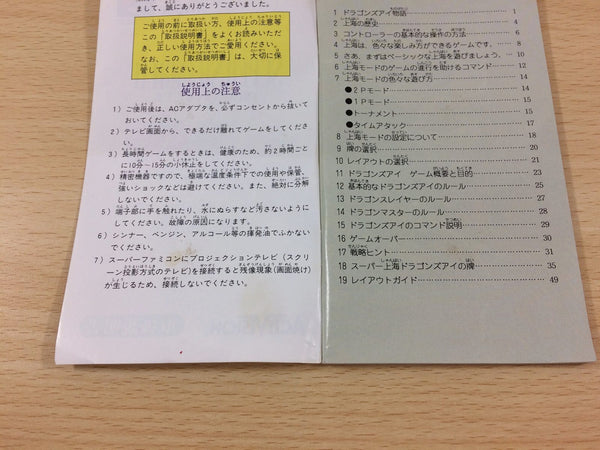 まして、誠にありがとうございました。
ご使用の前に取扱い方、使用上の注意等
この「取扱説明書」をよくお読みいただ
き、正しい使用方法でご愛用ください。
なお、この「取扱説明書」は、大切に保
管してください。
使用上の注意
1）ご使用後は、ACアダプタを、必ずコンセントから抜いて
おいてください。
2）テレビ画面から、できるだけ離れてゲームをしてくださ
い。
3）長時間ゲームをするときは、健康のため、約2時間ごと
に10分〜15分の小休止をしてください。
4）精密機器ですので、極端な温度条件下での使用や保管、
強いショックなどは避けてください。また、絶対に分解
しないでください。
5）端子部に手を触れたり、水にぬらすなど汚さないように
してください。故障の原因になります。
6）シンナー、ベンジン、アルコール等の揮発油でふかない
でください。
7）スーパーファミコンにプロジェクションテレビ（スクリ
ーン投影方式のテレビ）を接続すると残像現象（画面焼け）
が生じるため、接続しないでください。
1 ドラゴンズアイ物語 1
2 上海の歴史 4
3 コントローラーの基本的な操作の方法 6
4 上海は、色々な楽しみ方ができるゲームです。 8
5 さあ、まずはベーシックな上海を遊びましょう。 10
6 上海モードのゲームの進行を助けるコマンド 12
7 上海モードの色々な遊び方 14
●2Pモード 14
●1Pモード 15
●トーナメント 15
●タイムアタック 17
8 上海モードの設定について 18
9 牌の選択 20
10 レイアウトの選択 21
11 ドラゴンズアイ ゲーム概要と目的 23
12 基本的なドラゴンズアイのルール 25
13 ドラゴンスレイヤーのルール 27
14 ドラゴンマスターのルール 28
15 ドラゴンズアイのコマンド説明 29
16 ゲームオーバー 30
17 戦略ヒント 31
18 スーパー上海ドラゴンズアイの牌 35
19 レイアウトガイド 49